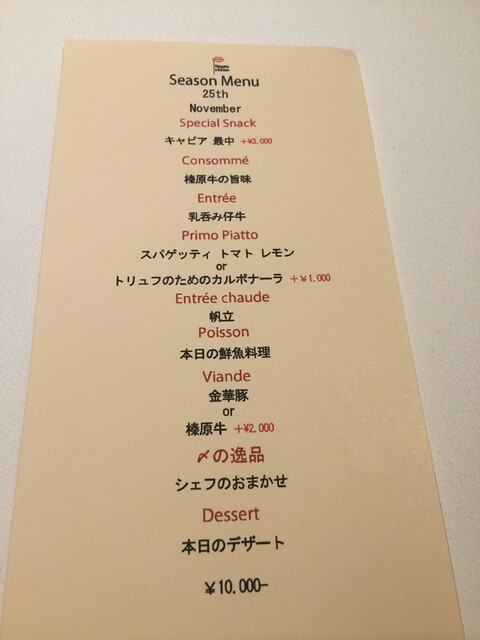 Season Menu
25th
November
Special Snack
キャビア 最中 +¥3,000
Consommé
榛原牛の旨味
Entrée
乳呑み仔牛
Primo Piatto
スパゲッティ トマト レモン
or
トリュフのためのカルボナーラ +¥1,000
Entrée chaude
帆立
Poisson
本日の鮮魚料理
Viande
金華豚
or
榛原牛 +¥2,000
〆の逸品
シェフのおまかせ
Dessert
本日のデザート
¥10,000-